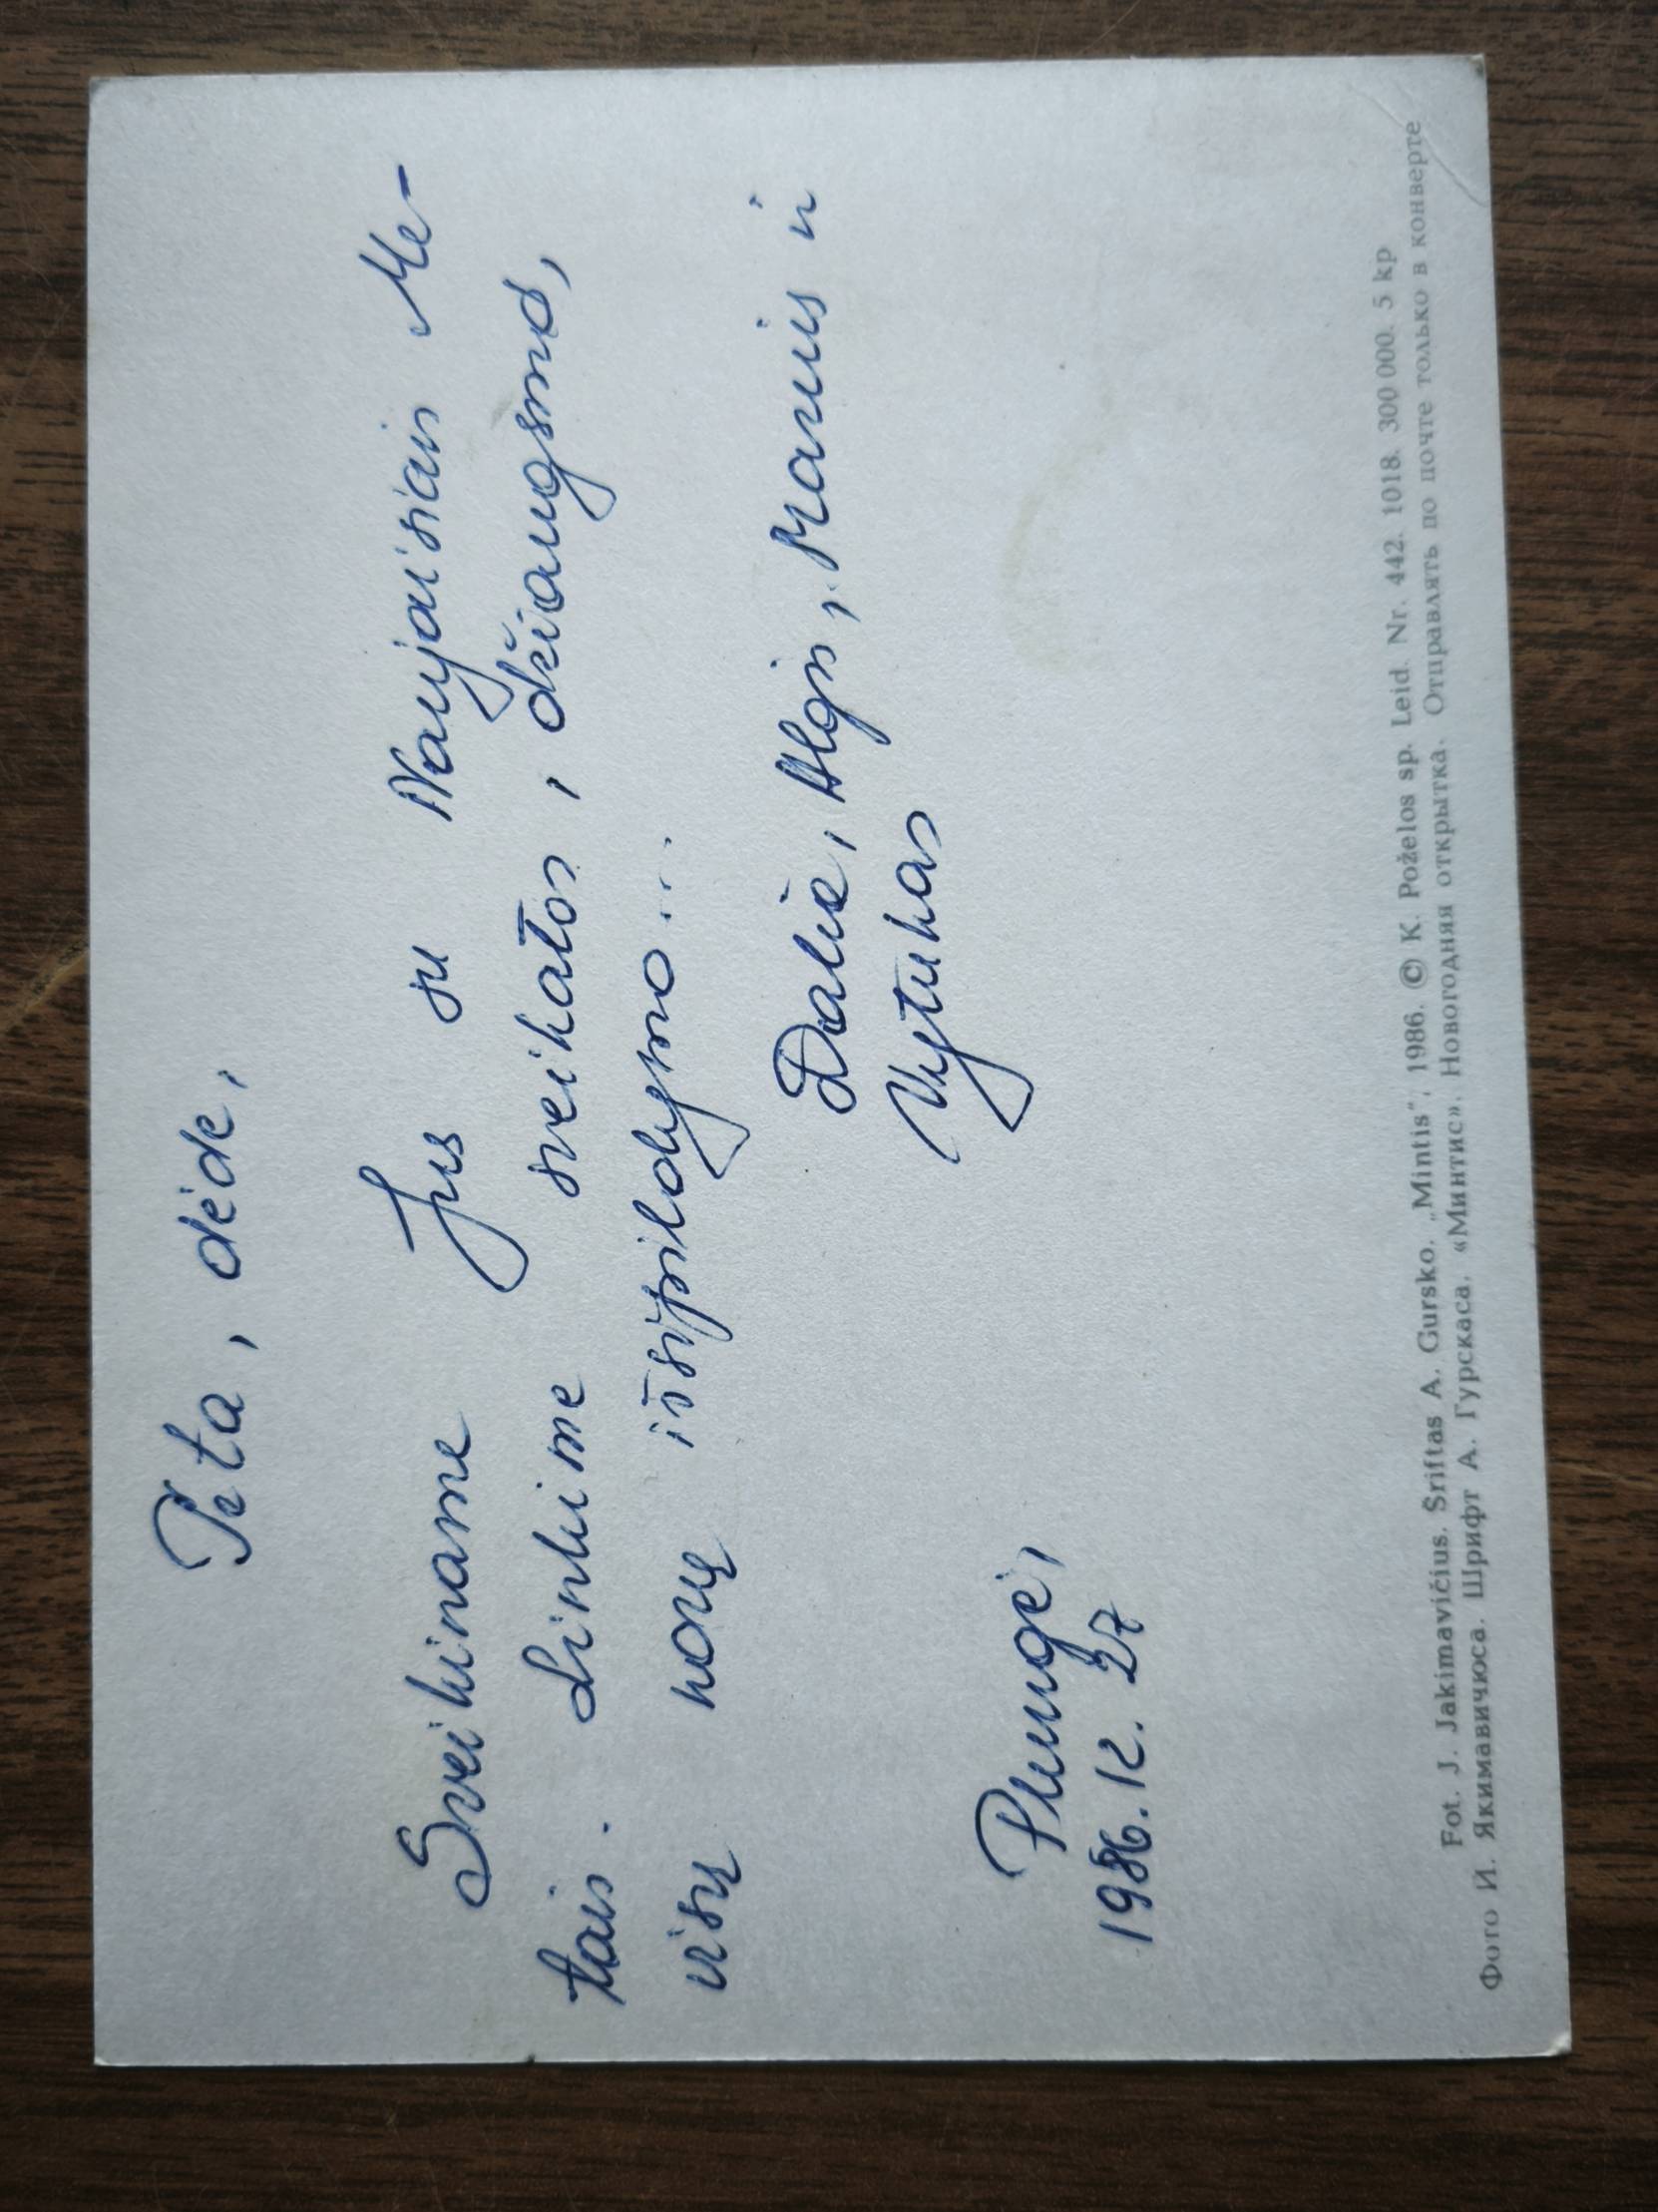 Teta, dėde,
Sveikiname Jus su Naujaisiais Me-
tais. Linkime sveikatos, džiaugsmo,
visų norų išsipildymo...
Dalia, Algis, Marius ir
Vytukas
Plungė,
1986.12.27
Fot. J. Jakimavičius. Šriftas A. Gursko. „Mintis", 1986. © K. Poželos sp. Leid. Nr. 442. 1018. 300 000. 5 kp
Фото И. Якимавичюса. Шрифт А. Гурскаса. «Минтис». Новогодняя открытка. Отправлять по почте только в конверте